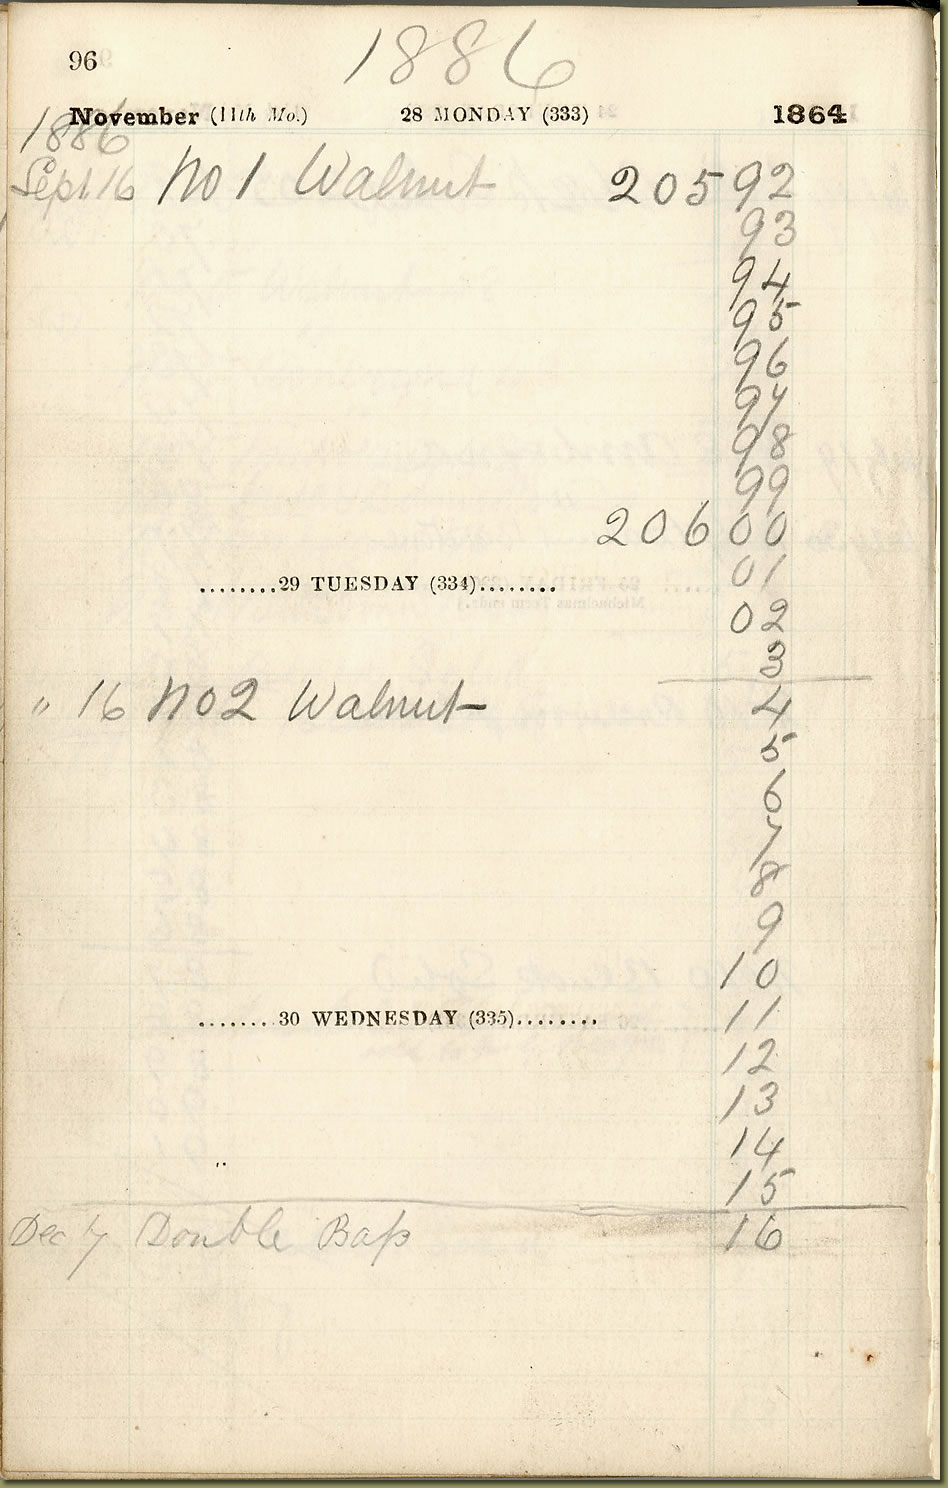 96
1886
November (11th Mo.) 28 MONDAY (333) 1864
1886
Sept 16 No 1 Walnut 20592
93
94
95
96
97
98
99
20600
01
........29 TUESDAY (334)........
02
3
" 16 No 2 Walnut 4
5
6
7
8
9
10
........30 WEDNESDAY (335)........ 11
12
13
14
15
Dec 7 Double Baſs 16